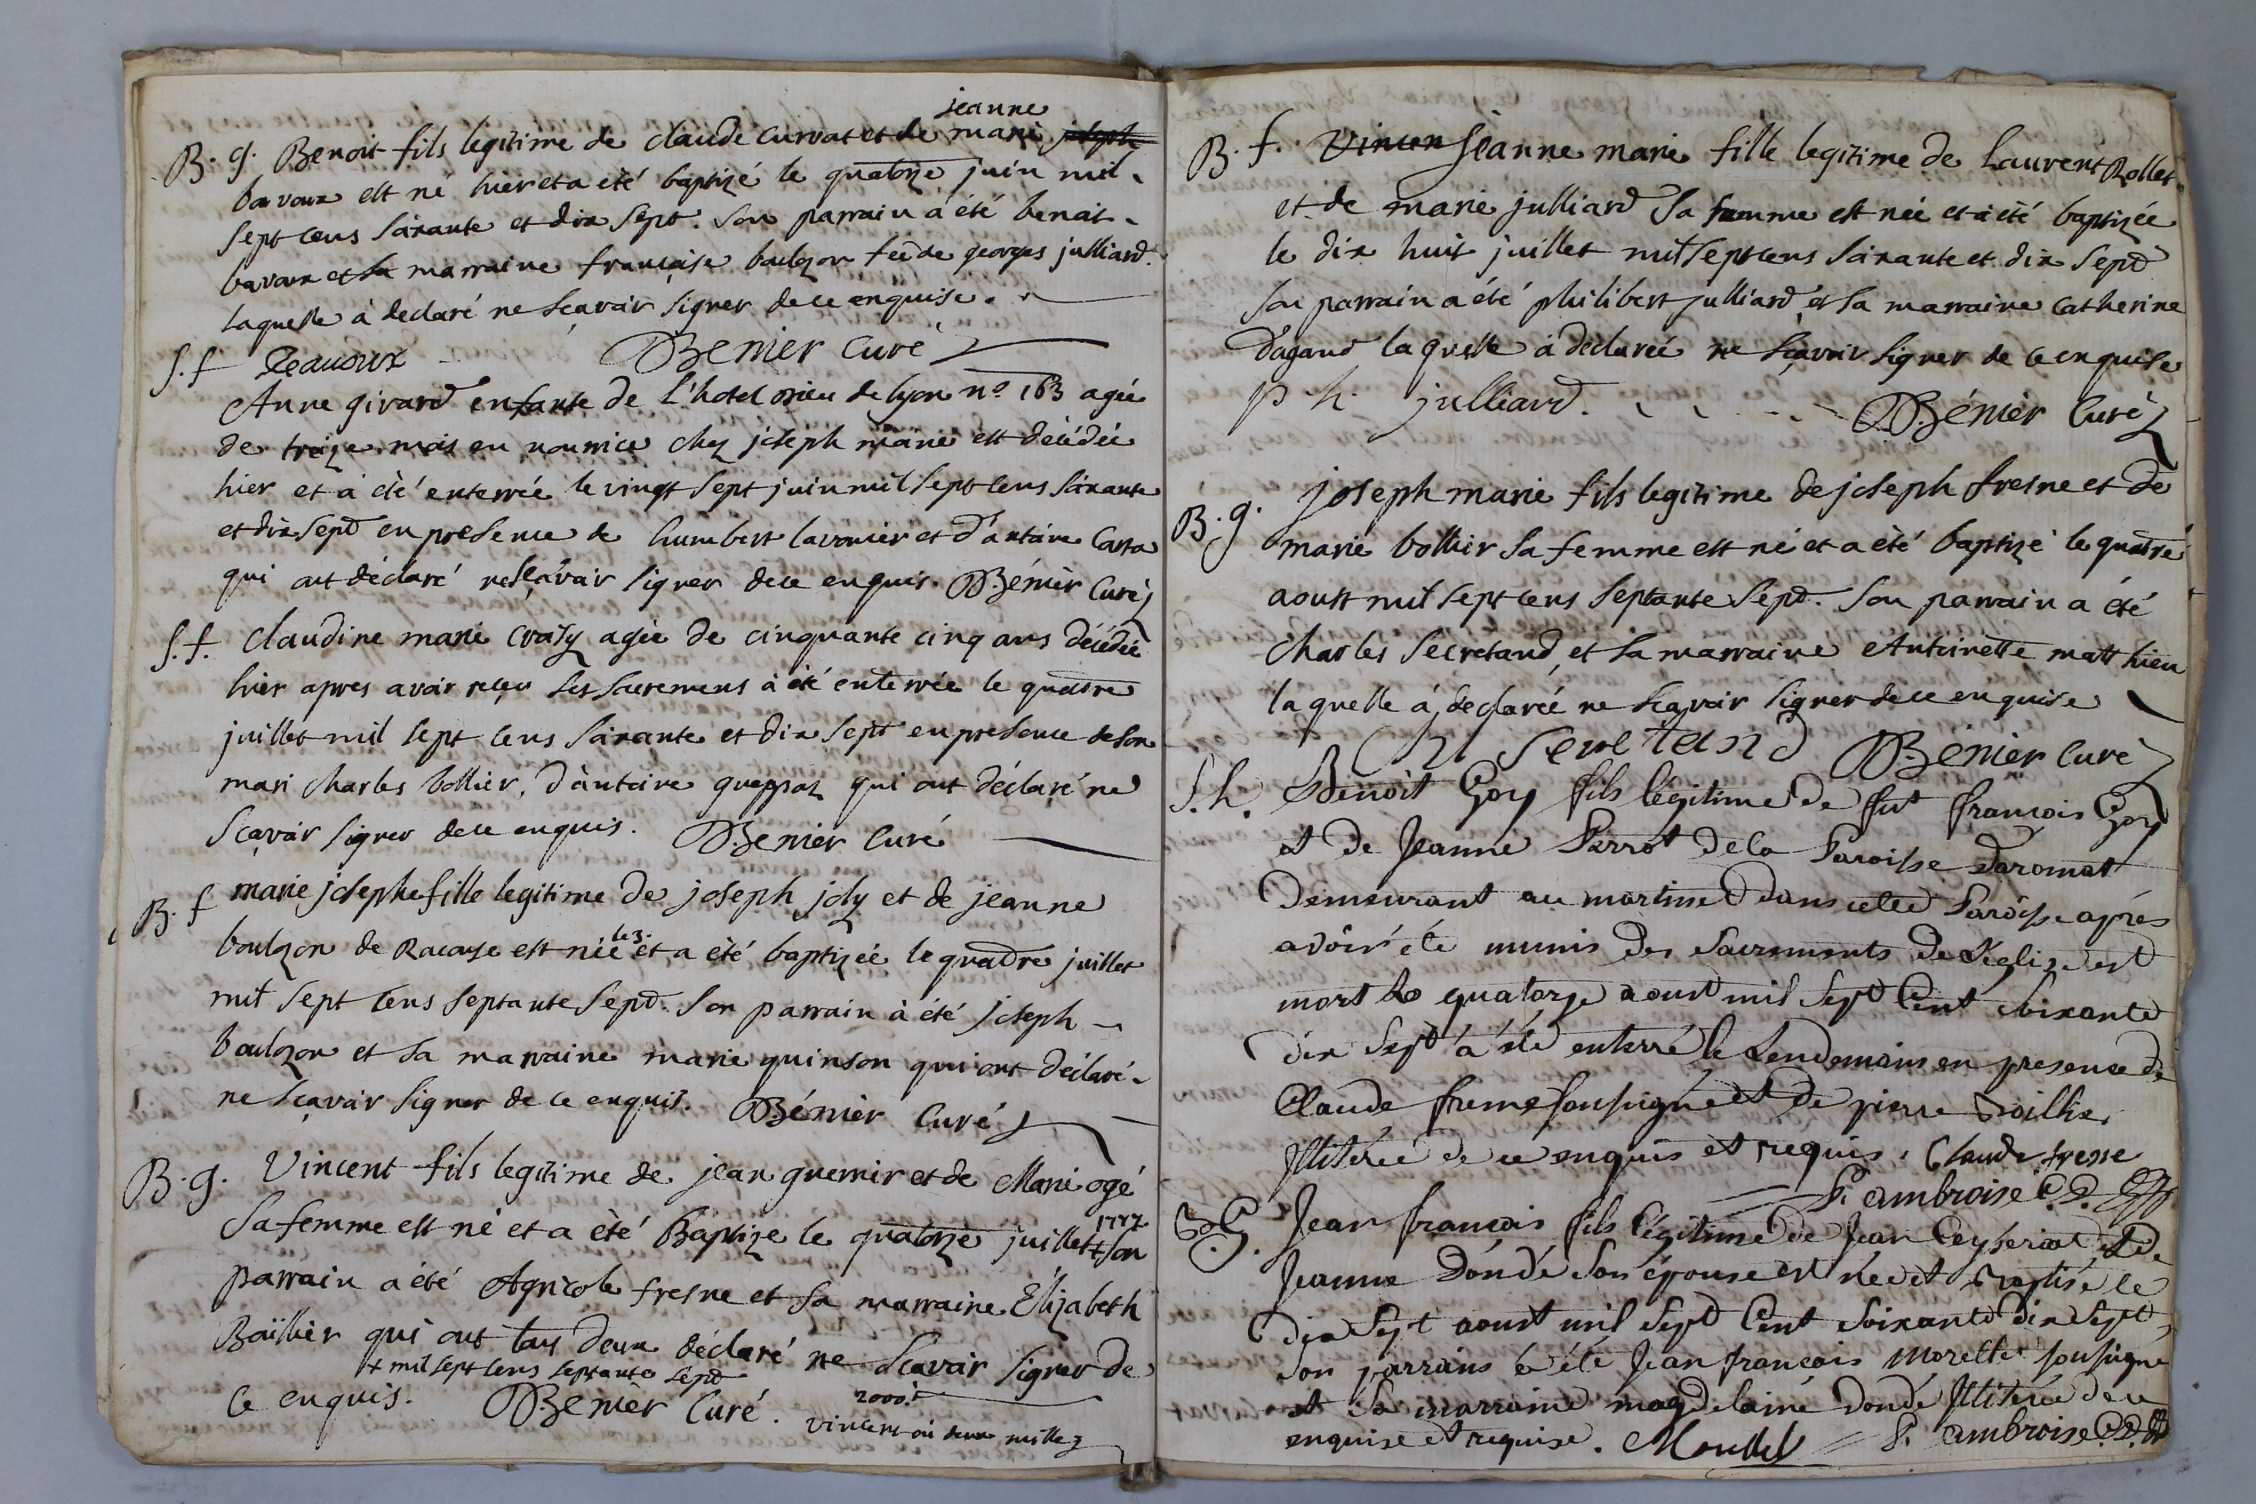 jeanne
B. g. Benoit fils legitime de claude curvat et de marie joseph
bavoux est né hier et a été baptizé le quatorze juin mil
sept cens soixante et dix sept. son parrain a été benoit
bavoux et sa marraine françoise boulzon fe de georges julliard.
laquelle à declaré ne scavoir signer de ce enquise.
Beauoux Benier Curé
s. f Anne girard enfante de l'hotel dieu de lyon no 163 agée
de treize mois en nourrice chez joseph marie est decédée
hier et à été enterrée le vingt sept juin mil sept cens soixante
et dix sept en presence de humbert lavonier et d'antoine Carta
qui ont déclaré ne sçavoir signer de ce enquis. Bénier Curé
s. f. Claudine marie crozy agée de cinquante cinq ans décédée
hier apres avoir reçu ses sacremens à été enterrée le quatre
juillet mil sept cens soixante et dix sept en presence de son
mari charles bollier, d'antoine gueppaz qui ont déclaré ne
sçavoir signer de ce enquis. Benier Curé
B. f marie josephe fille legitime de joseph joly et de jeanne
le 3.
boulzon de Racouse est née et a été baptizée le quatre juillet
mil sept cens septante sept. son parrain à été joseph
boulozon et sa marraine marie quinson qui ont déclaré
ne sçavoir signer de ce enquis. Bénier Curé
B. g. Vincent fils legitime de jean guernir et de Marie ogé
1777
sa femme est né et a été Baptize le quatorze juillet + son
parrain a été Agricole fresne et sa marraine Elizabeth
Boillier qui ont tous deux déclaré ne scavoir signer de
+ mil sept cens septante sept
ce enquis. Benier Curé. 2000!
vincent ou deux mille
B. f. Vincen jeanne marie fille legitime de Laurent Rollet
et de marie julliard sa femme est née et à été baptizée
le dix huit juillet mil sept cens soixante et dix sept
son parrain a été philibert julliard et sa marraine catherine
dagand laquelle à declareé ne sçavoir signer de ce enquise
p. h. julliard. Bénier Curé
B. g. joseph marie fils legitime de joseph fresne et de
marie bollier sa femme est né et a été baptizé le quatre
aoust mil sept cens septante sept. son parrain a été
charles secretand et sa marraine Antoinette matthieu
laquelle à declareé ne scavoir signer de ce enquise
Ch secretand Bénier Curé
S. h. Benoit Goy fils légitime de fut françois Goy
et de Jeanne Perrot de la Paroisse daromat
demeurant au martinet dans cette Paroisse aprés
avoir été munis des sacrements de L'eglize est
mort le quatorze aoust mil sept Cent soixante
dix sept a été enterré le Lendemain en presence de
Claude frene soussigné et de pierre Boillier
Illiterée de ce enquis et requis. Claude fresne
P. ambroise C. D.
B. G. Jean françois fils légitime de Jean Ceyseriat et de
Jeanne Dondé son épouse est né et Baptisé le
dix sept aoust mil sept Cent soixante dix sept,
son parrains a été Jean françois Morelle soussigne
et sa marraine magdelaine Dondé Illiterée de ce
enquise et requise. Morellet P. ambroise C. D.